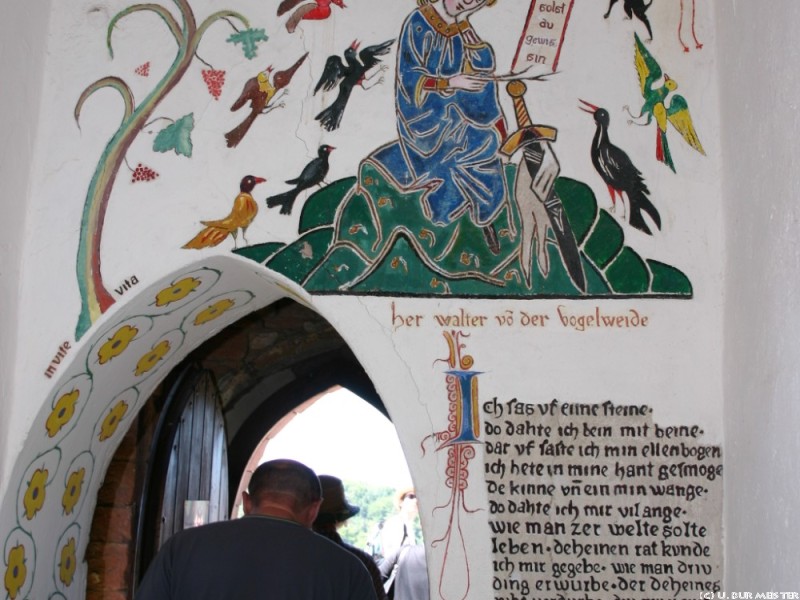 solst
du
gewis
sin
vita
in vite
her walter võ der vogelweide
Ich sas vf eime steine·
do dahte ich bein mit beine·
dar vf saste ich min ellenbogen
ich hete in mine hant gesmoge
de kinne vñ ein min wange·
do dahte ich mir vil ange·
wie man zer welte solte
leben· deheinen rat kvnde
ich mir gegebe· wie man driv
ding erwurbe· der deheines
(C) U. BURMEISTER